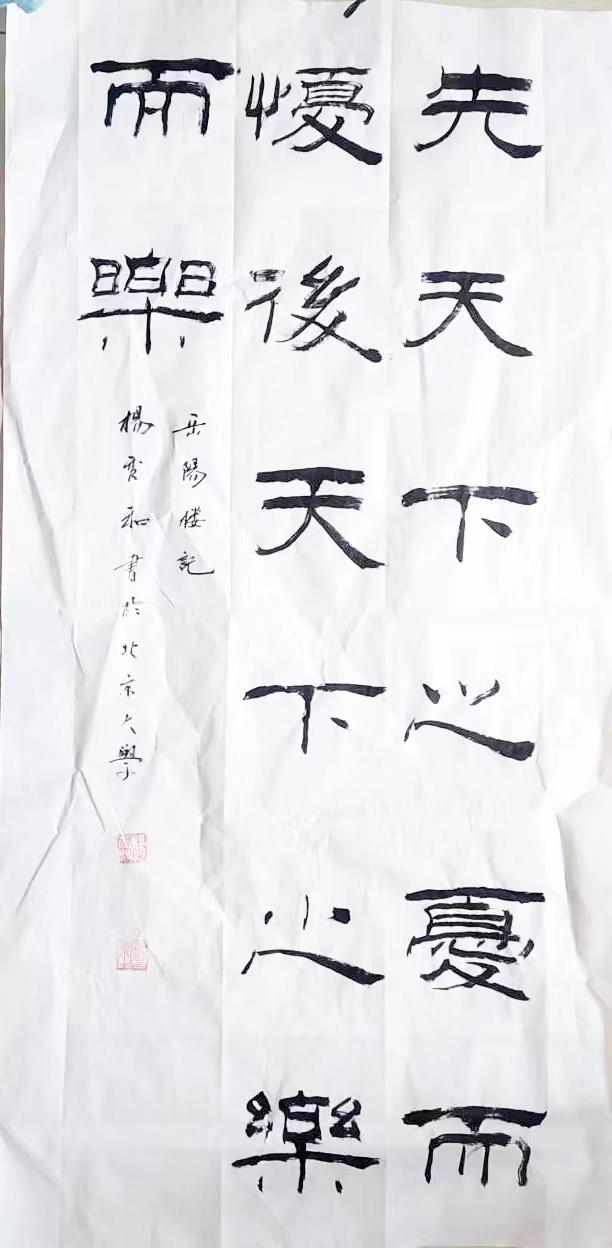 先天下之憂而
懮後天下之樂
而樂
岳陽楼記
楊雲和書於北京大學